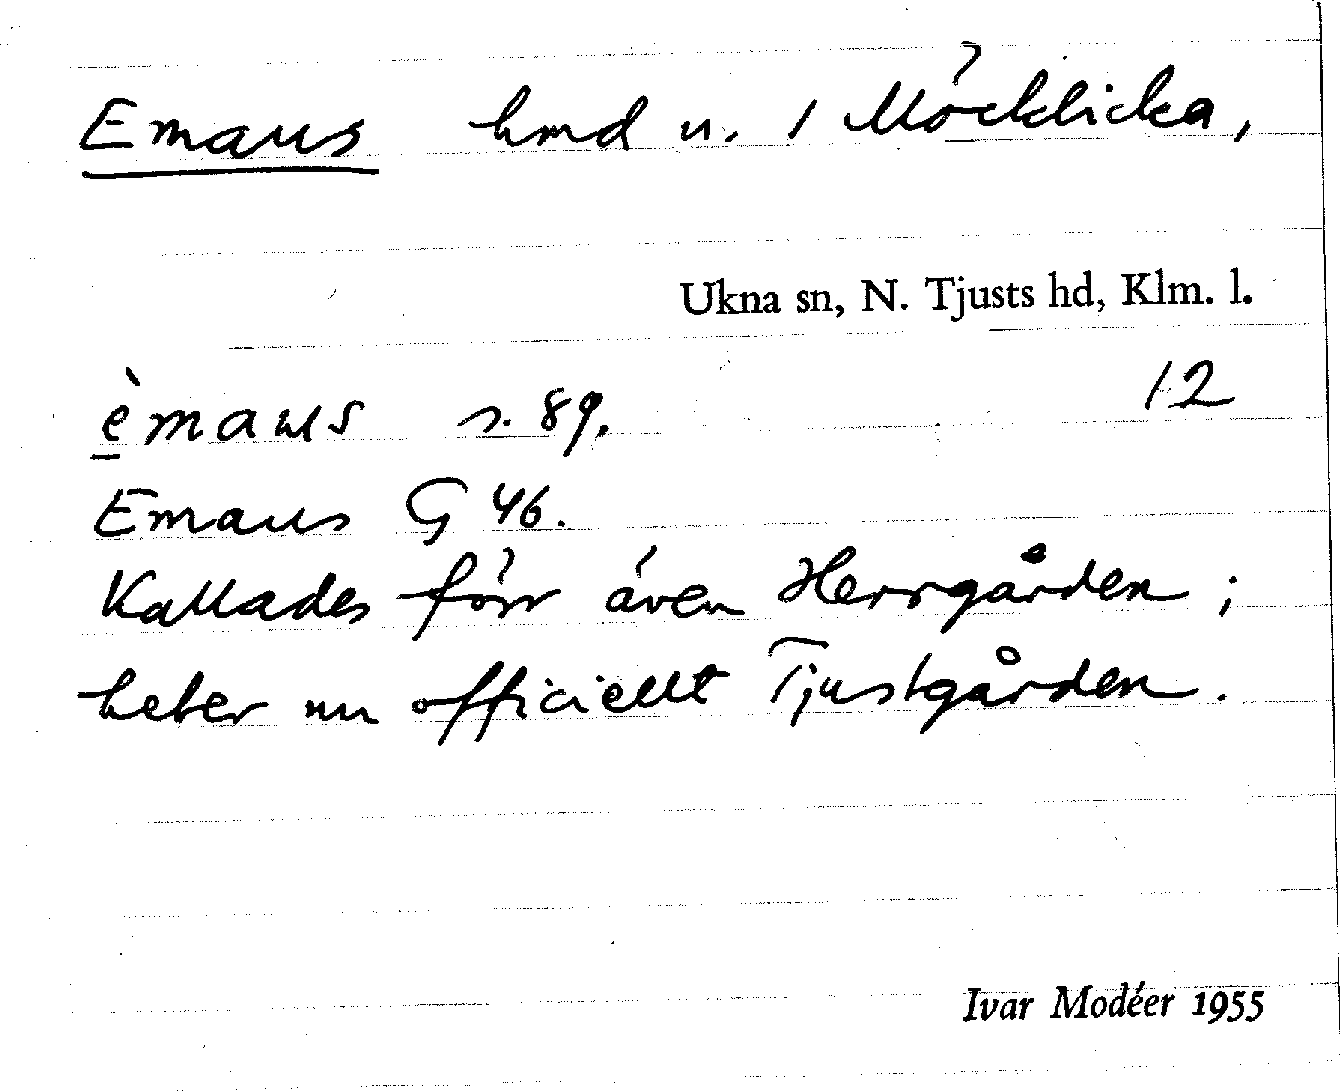 Emaus hmd u. 1 Möcklicka,
Ukna sn, N. Tjusts hd, Klm. l.
èmaus s. 89. 12
Emaus G 46.
Kallades förr även Herrgården ;
heter nu officiellt Tjustgården.
Ivar Modéer 1955